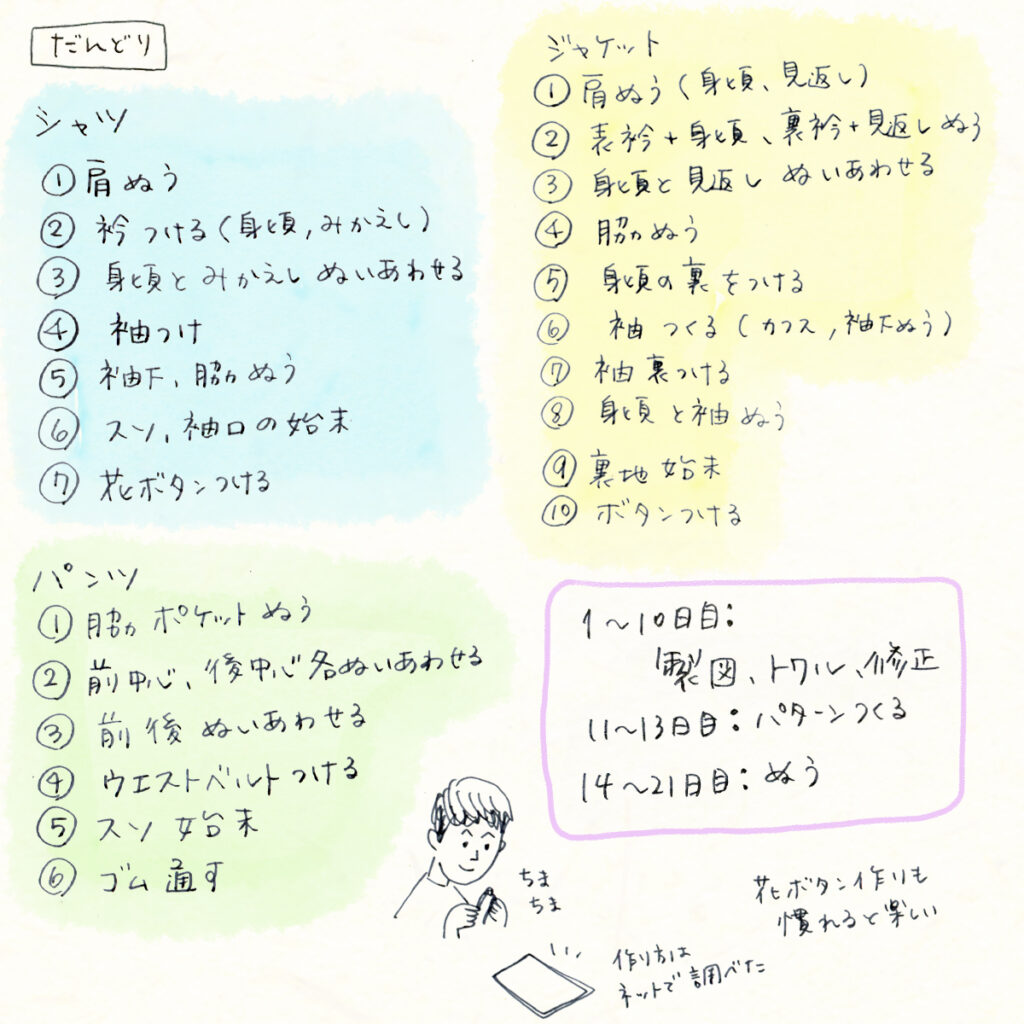 だんどり
シャツ
① 肩ぬう
② 衿つける(身頃,みかえし)
③ 身頃とみかえしぬいあわせる
④ 袖つけ
⑤ 袖下、脇ぬう
⑥ スソ、袖口の始末
⑦ 花ボタンつける
ジャケット
① 肩ぬう(身頃、見返し)
② 表衿+身頃、裏衿+見返しぬう
③ 身頃と見返しぬいあわせる
④ 脇ぬう
⑤ 身頃の裏をつける
⑥ 袖つくる(カフス,袖下ぬう)
⑦ 袖裏つける
⑧ 身頃と袖ぬう
⑨ 裏地始末
⑩ ボタンつける
パンツ
① 脇ポケットぬう
② 前中心、後中心各ぬいあわせる
③ 前後ぬいあわせる
④ ウエストベルトつける
⑤ スソ始末
⑥ ゴム通す
1〜10日目:
製図、トワル、修正
11〜13日目:パターンつくる
14〜21日目:ぬう
ちま
ちま
作り方は
ネットで調べた
花ボタン作りも
慣れると楽しい